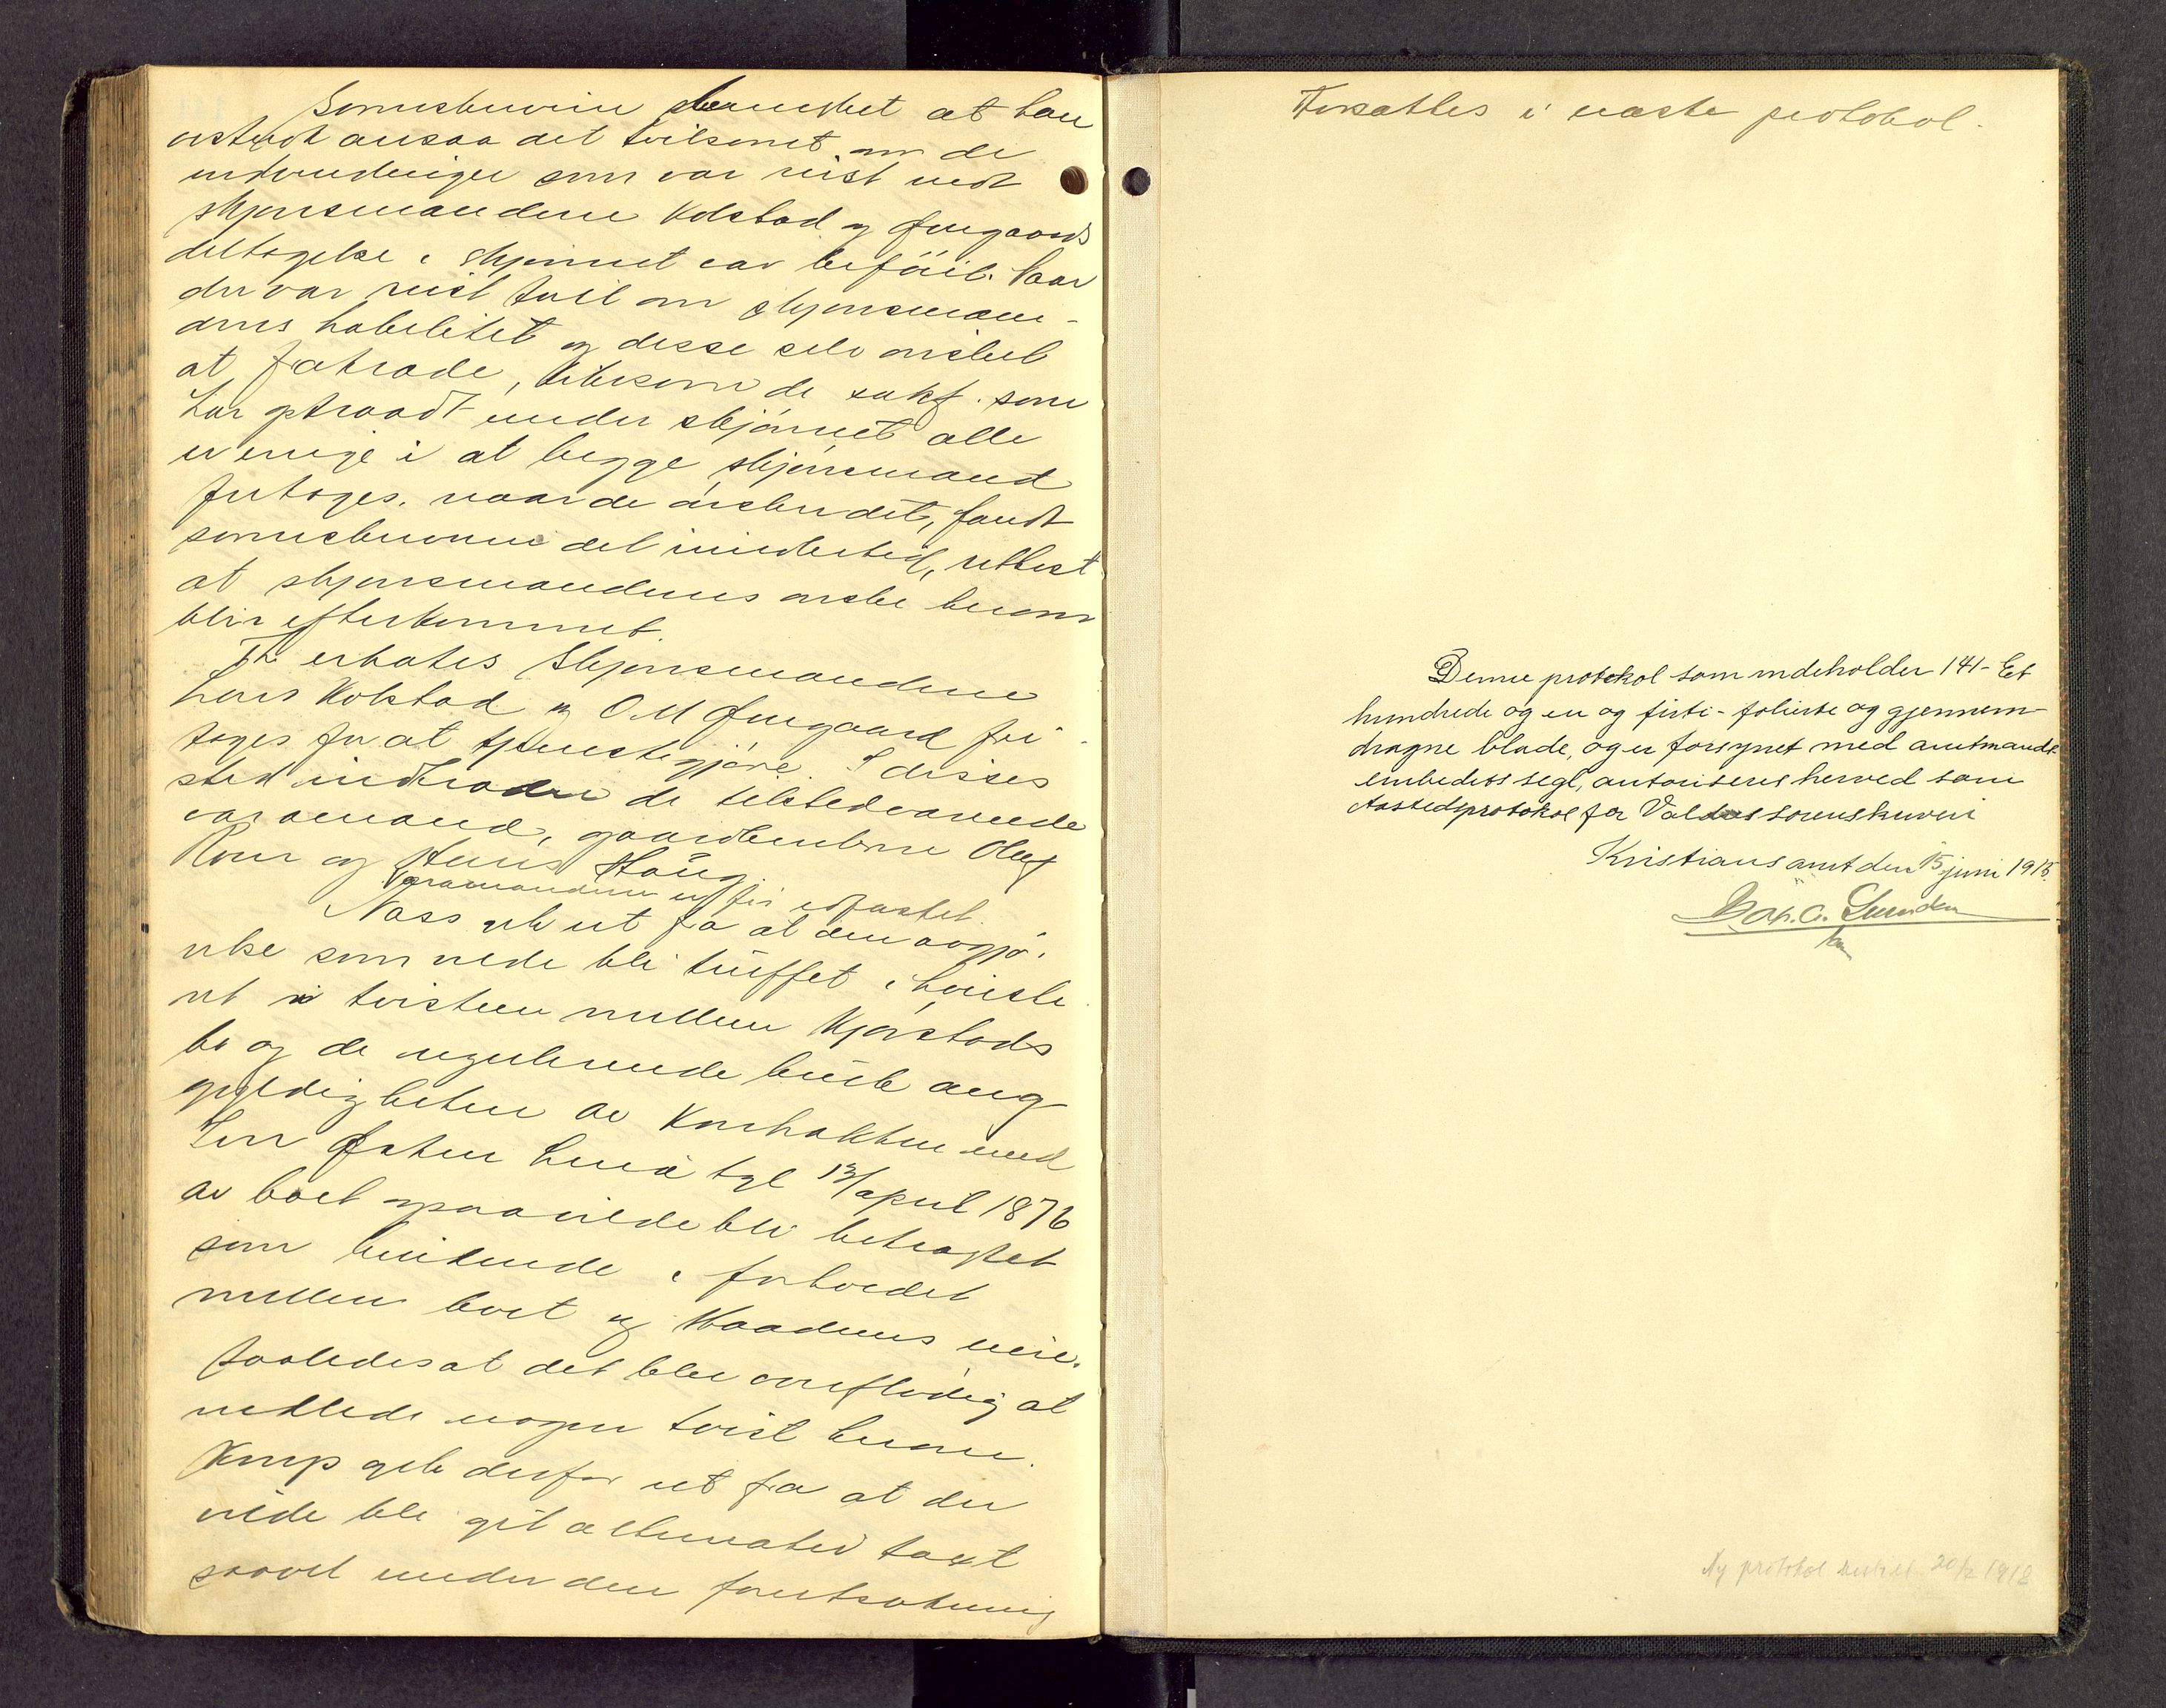 Sorenskriveren bemerket at han
vistnok ansaa det tvilsomt om de
indvendinger som var reist mot
skjønsmændene Kolstad og Øvregaards
deltagelse i skjønnet var beføiet. Naar
der var reist tvil om skjønsmæn-
dnes habilitet og disse selv ønsket
at fratræde, likesom de sakf. som
har optraadt under skjønnet alle
er enige i at begge skjønsmænd
fritages, naar de ønsker det, fandt
sorenskriveren det imidlertid rettest
at skjønsmændenes ønske herom
blir efterkommet.
Th erbates skjønsmændene
Lars Kolstad og O. M. Øvregaard fri-
toges for at tjenestegjøre. I disses
sted indtræder de tilstedeværende
varamænd, gaardbrukerne Oluf
Roen og Hans Haug.
Varamændene er før edfæstet.
Næss gik ut fra at den avgjø-
relse som vilde bli truffet i høieste
ret i tvisten mellem Kjørstads
bo og de regulerende bruk ang
gyldigheten av kontrakten med
Iver Østen Lunå tgl 13/april 1876
av boet ogsaa vilde bli betragtet
som bindende i forholdet
mellem boet og Waadnes eiere
saaledes at det blev overflødig at
nedlede nogen tvist herom.
Kemp gik derfor ut fra at der
vilde bli git alternativ takst
saavel under den forutsætning
Forsættes i næste protokol.
Denne protokol som indeholder 141 - Et
hundrede og en og firti - folierte og gjennem-
dragne blade, og er forsynet med amtmands-
embedets segl, autoriseres herved som
Aastedsprotokol for Valdres sorenskriveri
Kristians amt den 15 juni 1915.
Ny protokol 20/2 1918